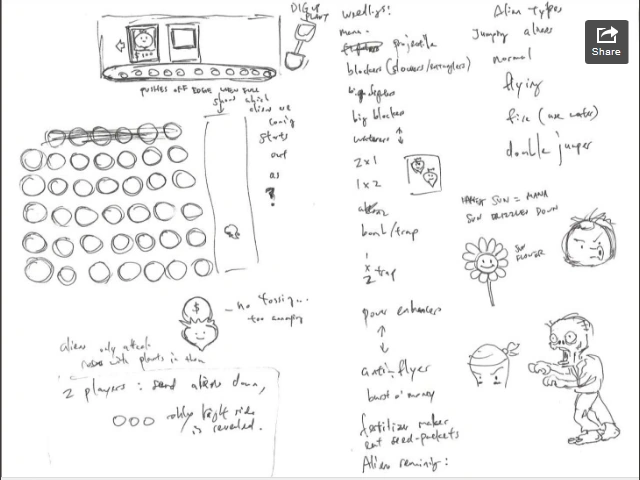 DIG UP
PLANT
$100
PUSHES OFF EDGE WHEN FULL
show which
aliens are
coming
starts
out
as
?
$
- no tossing...
too annoying
aliens only attack
rows with plants in them
2 players: send aliens down,
only right side
is revealed.
mana
projectile
blockers (slowers/entanglers)
big blocker
waterers
2x1
1x2
bomb/trap
1
x
2 trap
power enhancers
anti-flyer
burst o' money
fertilizer maker
eat seed-packets
Alien
Alien types
Jumping aliens
normal
flying
fire (use water)
double jumper
HARVEST SUN = MANA
SUN DRIZZLES DOWN
SUN
FLOWER
Share